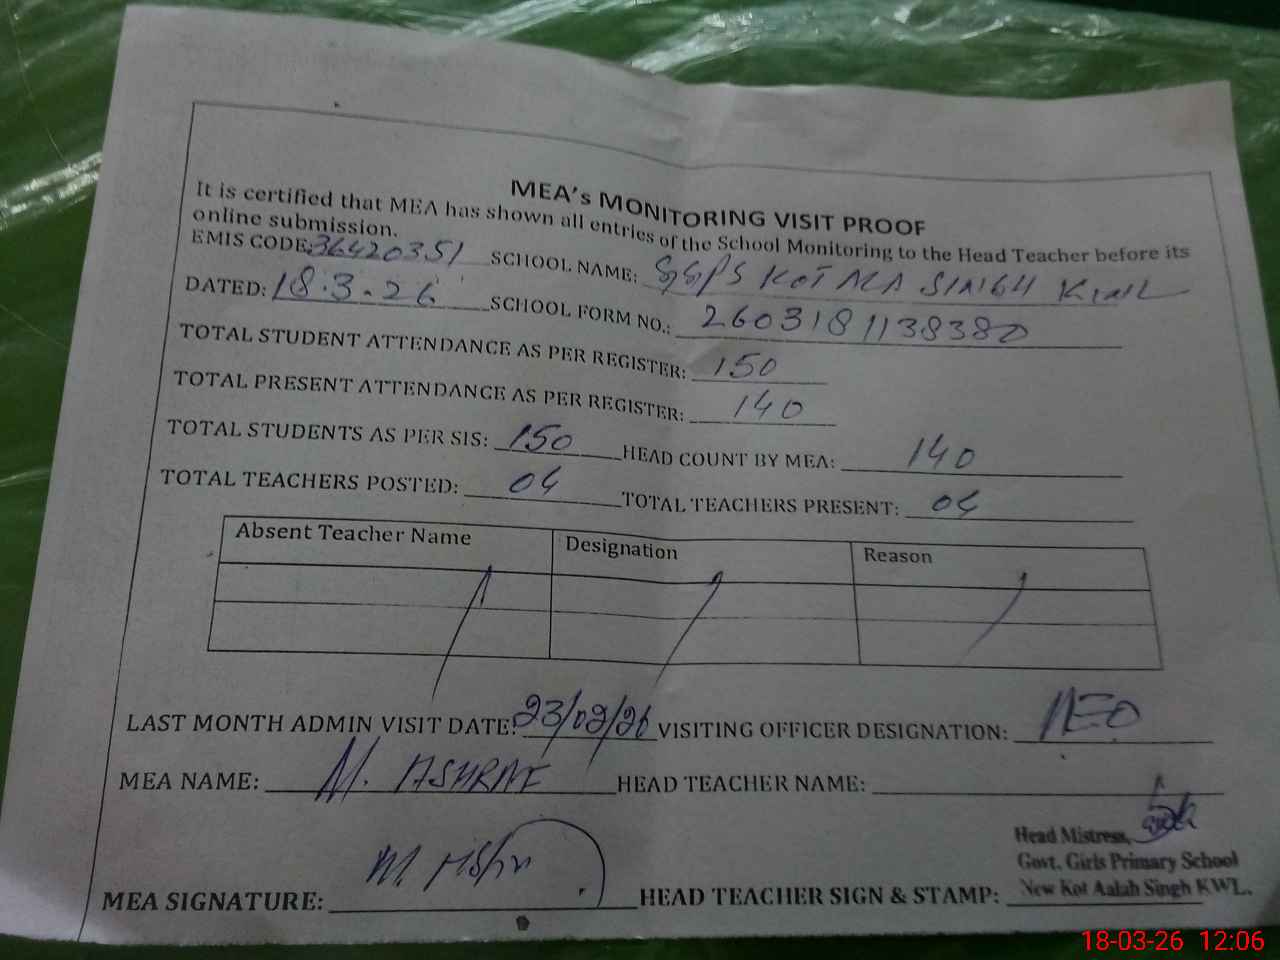 MEA's MONITORING VISIT PROOF
It is certified that MEA has shown all entries of the School Monitoring to the Head Teacher before its
online submission.
EMIS CODE: 36420351 SCHOOL NAME: GGPS KOT ALA SINGH KWL
DATED: 18.3.26 SCHOOL FORM NO.: 2603181138380
TOTAL STUDENT ATTENDANCE AS PER REGISTER: 150
TOTAL PRESENT ATTENDANCE AS PER REGISTER: 140
TOTAL STUDENTS AS PER SIS: 150 HEAD COUNT BY MEA: 140
TOTAL TEACHERS POSTED: 04 TOTAL TEACHERS PRESENT: 04
Absent Teacher Name Designation Reason
LAST MONTH ADMIN VISIT DATE: 23/02/26 VISITING OFFICER DESIGNATION: AEO
MEA NAME: M. ASHRAF HEAD TEACHER NAME:
Head Mistress,
Govt. Girls Primary School
New Kot Aalah Singh KWL.
MEA SIGNATURE: HEAD TEACHER SIGN & STAMP:
18-03-26 12:06